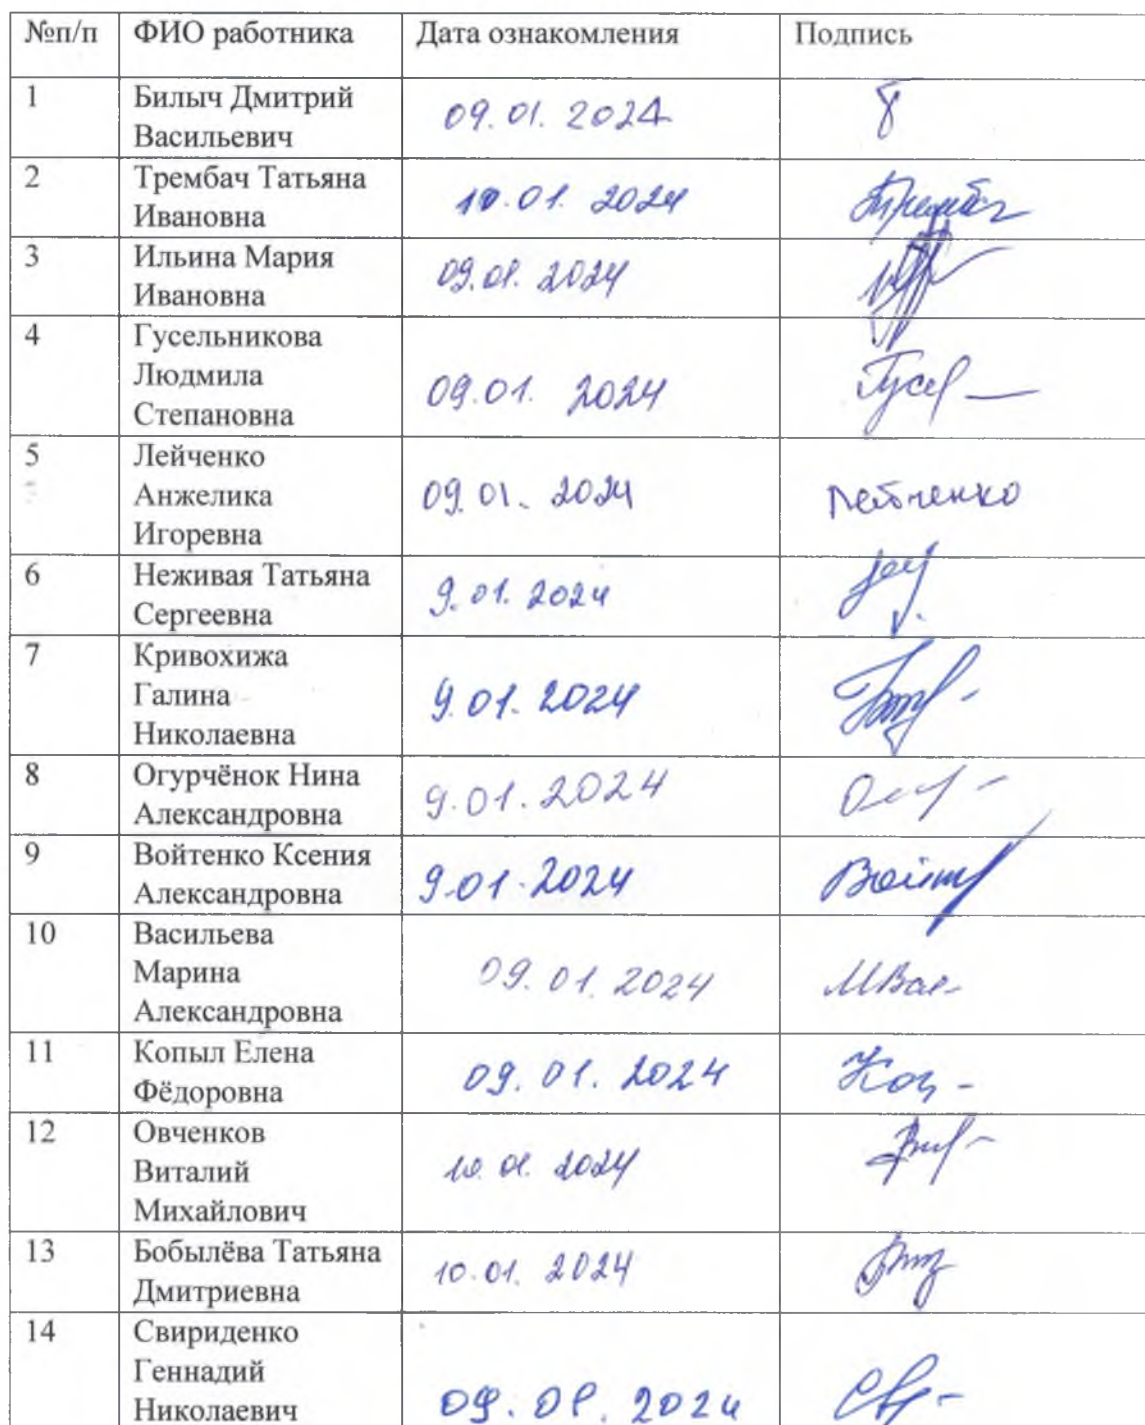 №п/п ФИО работника Дата ознакомления Подпись
1 Билыч Дмитрий
Васильевич 09.01.2024
2 Трембач Татьяна
Ивановна 10.01.2024
3 Ильина Мария
Ивановна 09.01.2024
4 Гусельникова
Людмила
Степановна 09.01.2024 Гусел
5 Лейченко
Анжелика
Игоревна 09.01.2024 Лейченко
6 Неживая Татьяна
Сергеевна 9.01.2024
7 Кривохижа
Галина
Николаевна 9.01.2024
8 Огурчёнок Нина
Александровна 9.01.2024
9 Войтенко Ксения
Александровна 9.01.2024
10 Васильева
Марина
Александровна 09.01.2024 МВас
11 Копыл Елена
Фёдоровна 09.01.2024
12 Овченков
Виталий
Михайлович 10.01.2024
13 Бобылёва Татьяна
Дмитриевна 10.01.2024
14 Свириденко
Геннадий
Николаевич 09.01.2024